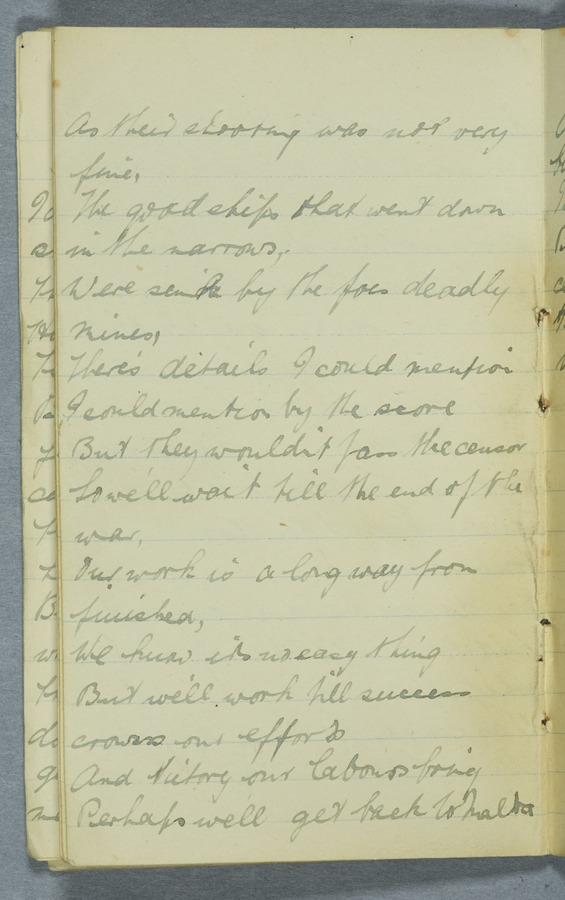 As their shooting was not very
fine,
The good ships that went down
in the narrows,
Were sunk by the foes deadly
mines,
There's details I could mention
I could mention by the score
But they wouldn't pass the censor
So we'll wait till the end of the
war,
Our work is a long way from
finished,
We know its no easy thing
But we'll work till success
crowns our efforts
And Victory our labours bring
Perhaps well get back to Malta